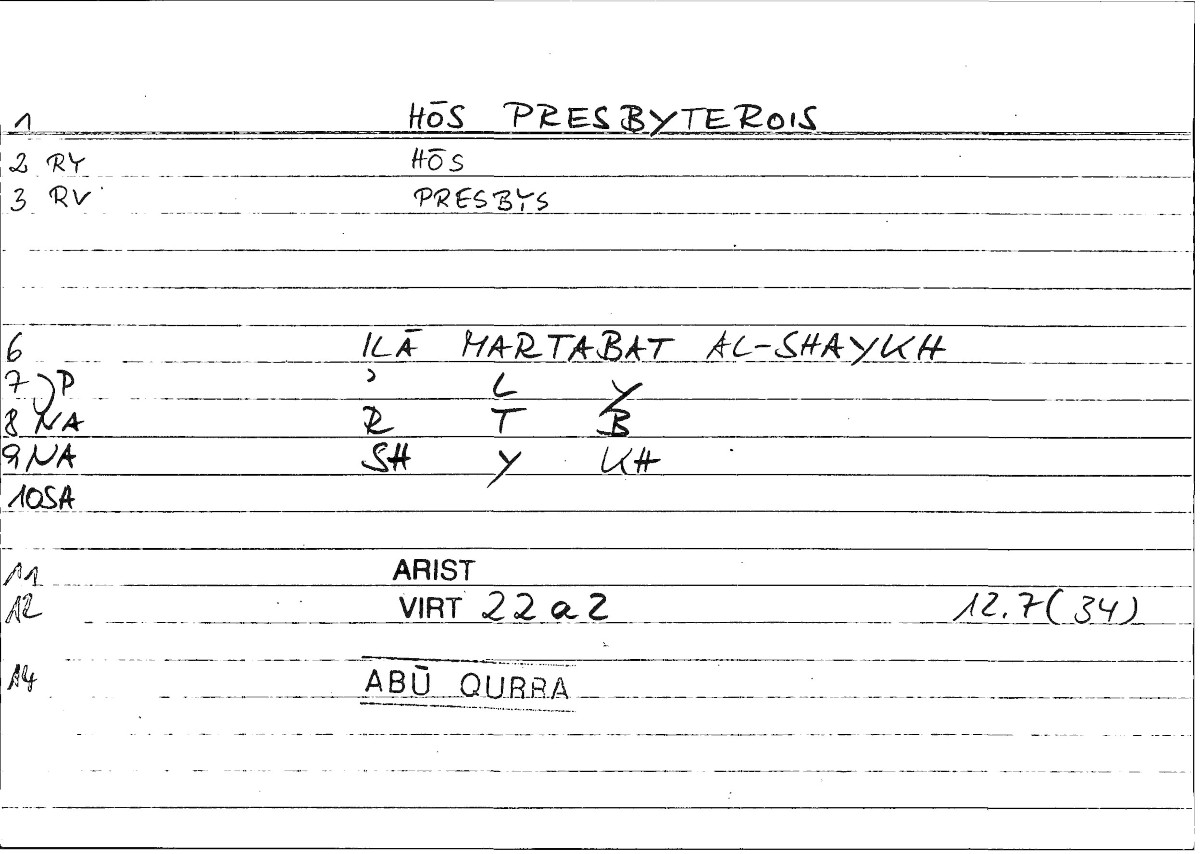 1 HŌS PRESBYTEROIS
2 RY HŌS
3 RV PRESBYS
6 ILĀ MARTABAT AL-SHAYKH
7 P ʾ L Y
8 NA R T B
9 NA SH Y KH
10 SA
11 ARIST
12 VIRT 22 a 2 12.7 (34)
14 ABŪ QURRA